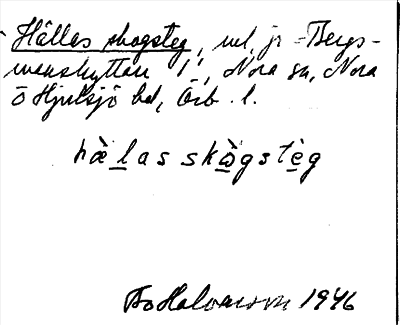 Hällas skogsteg, vid jv = Bergs-
manshyttan 1/1, Nora sn, Nora
o Hjulsjö bd, Örb. l.
hæ̀las skògstèg
Bo Halvarson 1946